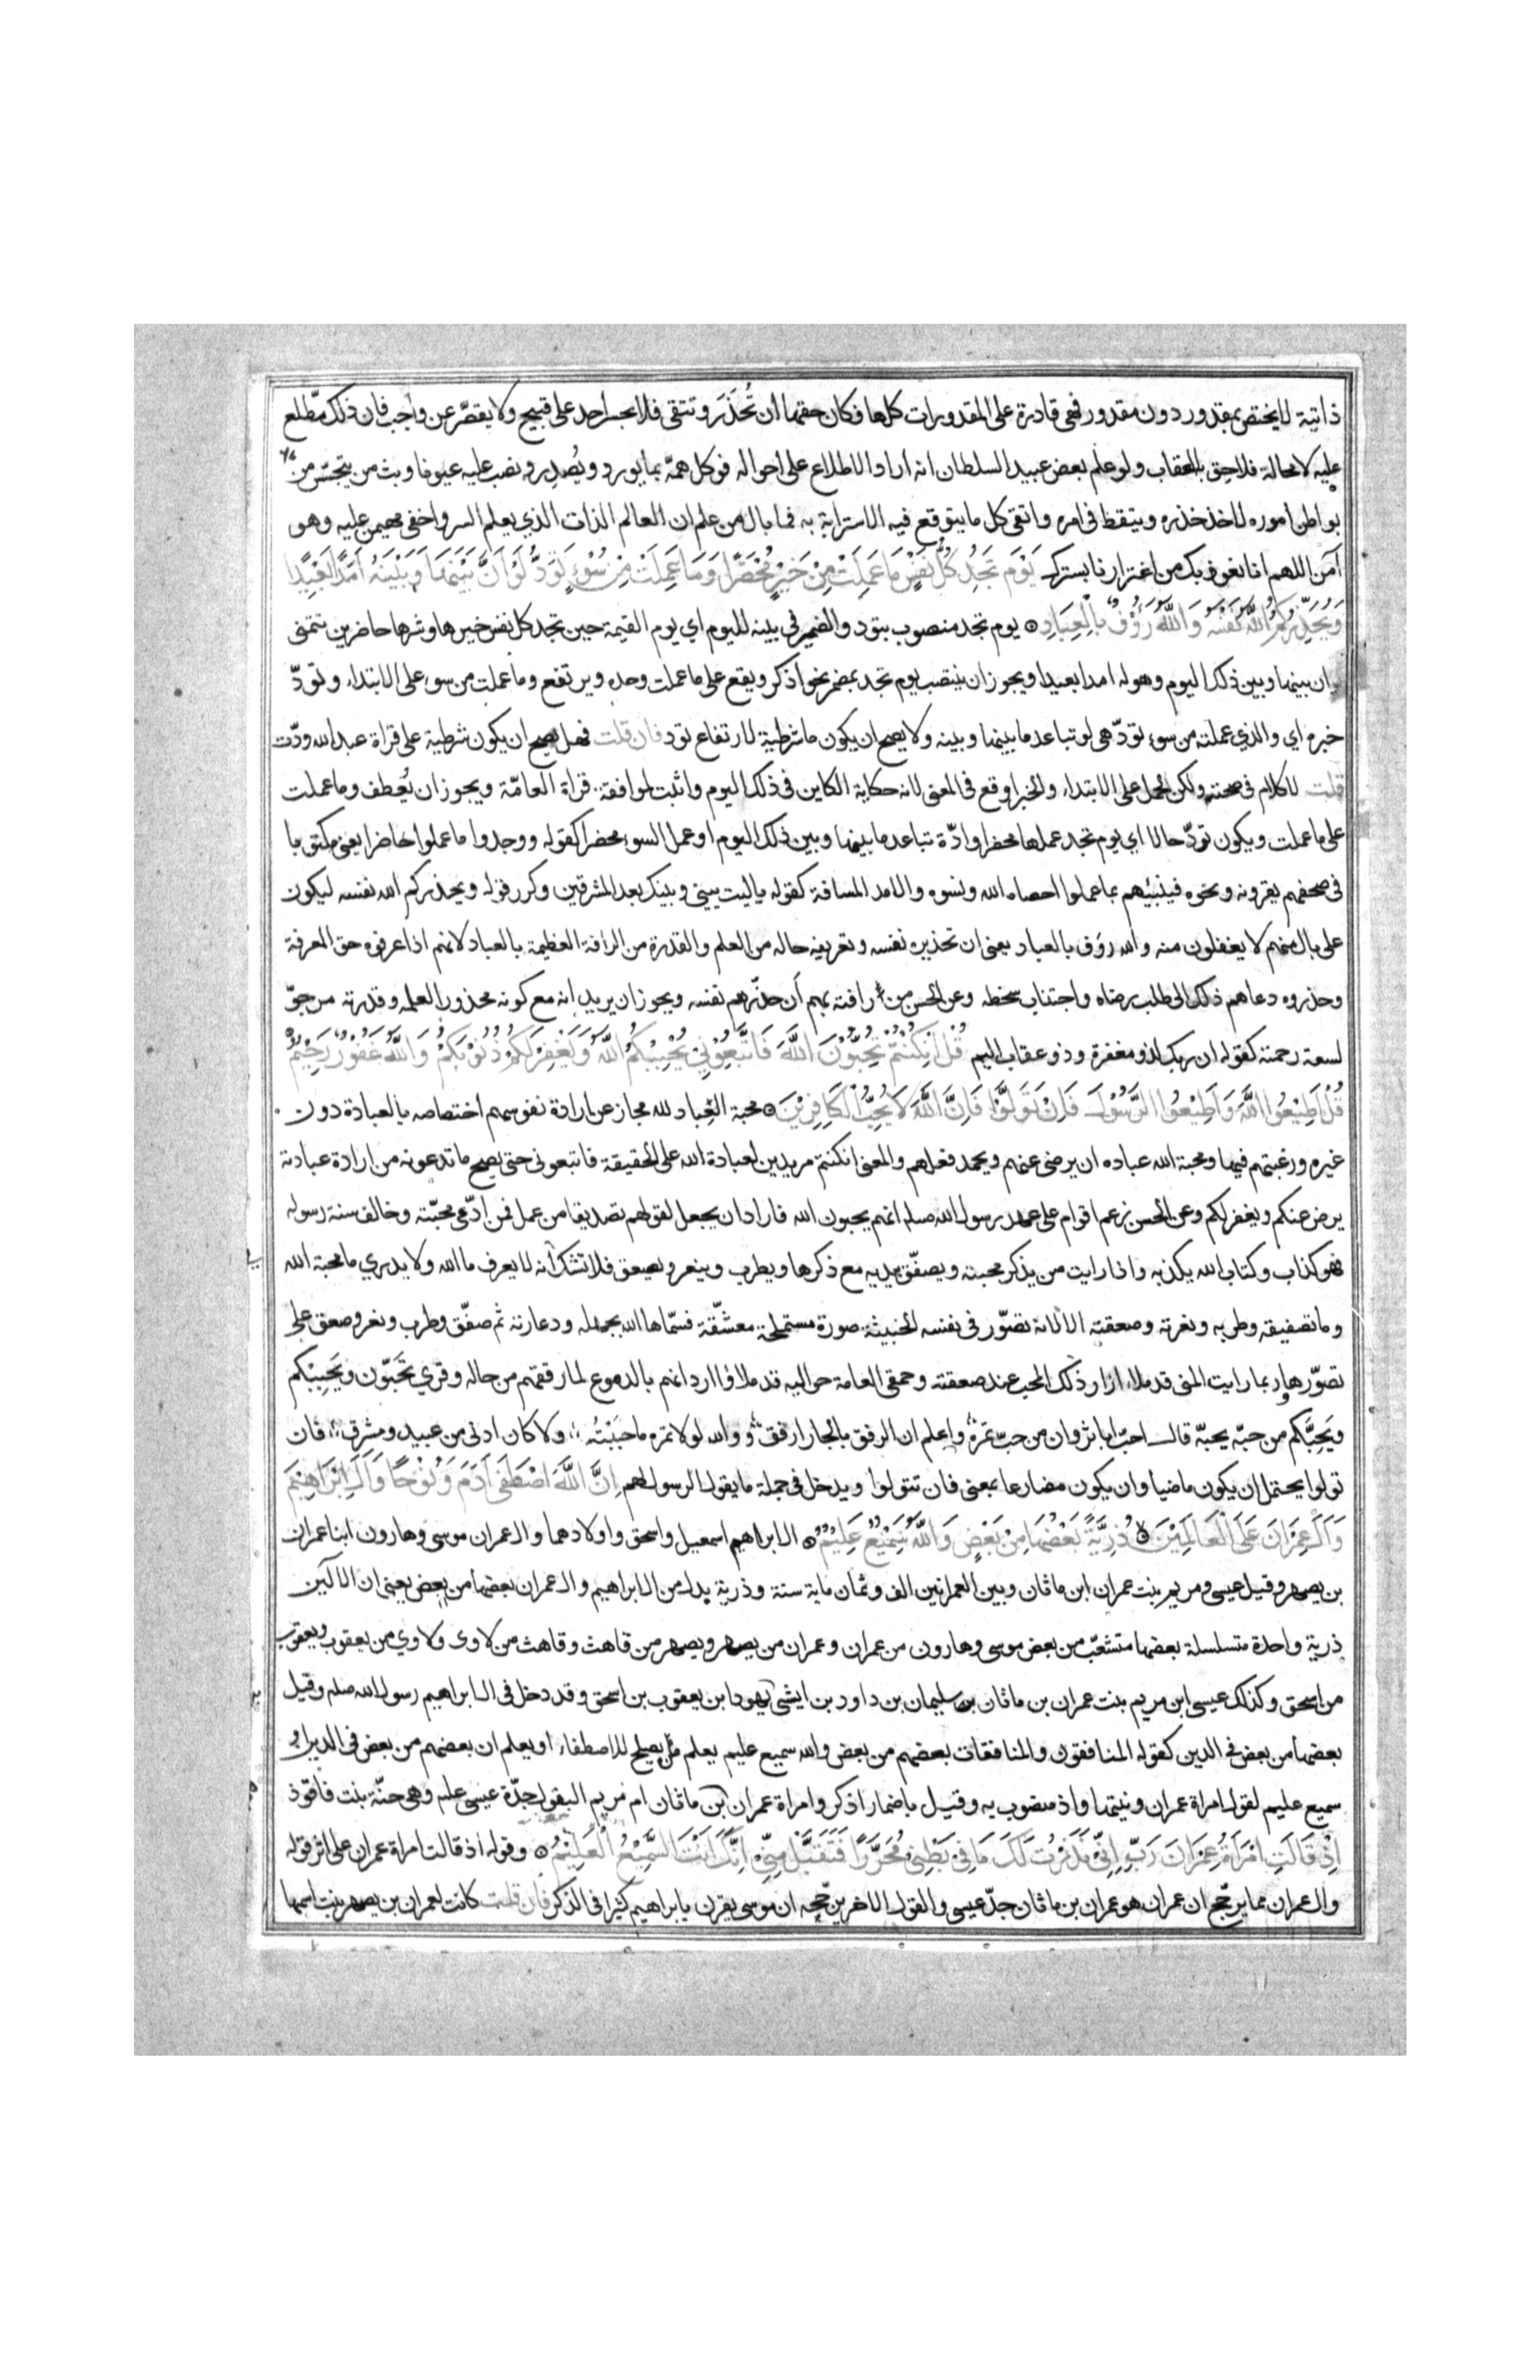 ذاتية لا يختص بمقدور دون مقدور فهي قادرة على المقدورات كلها فكان حقها أن تُحذَر وتتقى فلا يجسر احد على قبيح ولا يقصّر عن واجب فان ذلك مطّلع
عليه لا محالة فلاحق به العقاب ولو علم بعض عبيد السلطان انه اراد الاطلاع على احواله فوكل همّه بما يورد ويُصدِر ونصب عليه عيونا وبث من يتجسّس من
بواطن اموره لاخذ حذره وتيقظ في امره واتقى كل ما يتوقع فيه الاسترابة به فما بال من علم ان العالم الذات الذي يعلم السر واخفى مهيمن عليه وهو
آمن اللهم انا نعوذ بك من اغترارنا بسترك يَوْمَ تَجِدُ كُلُّ نَفْسٍ مَا عَمِلَتْ مِنْ خَيْرٍ مُحْضَرًا وَمَا عَمِلَتْ مِنْ سُوْءٍ تَوَدُّ لَوْ اَنَّ بَيْنَهَا وَبَيْنَهُ اَمَدًا بَعِيْدًا
وَيُحَذِّرُكُمُ اللّٰهُ نَفْسَهُ وَاللّٰهُ رَؤُفٌ بِالْعِبَادِ ۞ يوم تجد منصوب بتود والضمير في بينه لليوم اي يوم القيمة حين تجد كل نفس خيرها وشرها حاضرين تتمنى
لو ان بينها وبين ذلك اليوم وهوله امدا بعيدا ويجوز ان ينتصب يوم تجد بمضمر نحو اذكر ويقع على ما عملت وحده ويرتفع وما عملت من سوء على الابتداء وتودّ
خبره اي والذي عملته من سوء تودّ هي لو تباعد ما بينها وبينه ولا يصح ان يكون ما شرطية لارتفاع تود فان قلت فهل يصح ان يكون شرطية على قراة عبد الله ودّت
قلت لا كلام في صحته ولكن الحمل على الابتداء والخبر اوقع في المعنى لانه حكاية الكاين في ذلك اليوم واثبت لموافقة قراة العامّة ويجوز ان يُعطف وما عملت
على ما عملت ويكون تودّ حالا اي يوم تجد عملها محضرا وادّة تباعد ما بينها وبين ذلك اليوم او عمل السوء محضرا كقوله ووجدوا ما عملوا حاضرا يعني مكتوبا
في صحفهم يقرونه ونحوه فينبئهم بما عملوا احصاه الله ونسوه والامد المسافة كقوله يا ليت بيني وبينك بعد المشرقين وكرر قوله ويحذركم الله نفسه ليكون
على بال منهم لا يغفلون منه والله رؤف بالعباد يعني ان تحذيره نفسه وتعريفه حاله من العلم والقدرة من الرافة العظيمة بالعباد لانهم اذا عرفوه حق المعرفة
وحذروه دعاهم ذلك الى طلب رضاه واجتناب سخطه وعن الحسن من رافته بهم أن حذّرهم نفسه ويجوز ان يريد انه مع كونه محذورا لعلمه وقدرته مرجوّ
لسعة رحمته كقوله ان ربك لذو مغفرة وذو عقاب اليم قُلْ اِنْ كُنْتُمْ تُحِبُّوْنَ اللّٰهَ فَاتَّبِعُوْنِيْ يُحْبِبْكُمُ اللّٰهُ وَيَغْفِرْ لَكُمْ ذُنُوْبَكُمْ وَاللّٰهُ غَفُوْرٌ رَحِيْمٌ
قُلْ اَطِيْعُوا اللّٰهَ وَاَطِيْعُوا الرَّسُوْلَ فَاِنْ تَوَلَّوْا فَاِنَّ اللّٰهَ لَا يُحِبُّ الْكَافِرِيْنَ ۞ محبة العباد لله مجاز عن ارادة نفوسهم اختصاصه بالعبادة دون
غيره ورغبتهم فيها ومحبة الله عباده ان يرضى عنهم ويحمد فعلهم والمعنى ان كنتم مريدين لعبادة الله على الحقيقة فاتبعوني حتى يصح ما تدعونه من ارادة عبادته
يرض عنكم ويغفر لكم وعن الحسن زعم اقوام على عهد رسول الله صلم انهم يحبون الله فاراد ان يجعل لقولهم تصديقا من عمل فمن ادّعى محبّته وخالف سنة رسوله
فهو كذاب وكتاب الله يكذبه واذا رايت من يذكر محبته ويصفّق بيديه مع ذكرها ويطرب وينعر ويصعق فلا تشك أنه لا يعرف ما الله ولا يدري ما محبة الله
وما تصفيقه وطربه ونعرته وصعقته الا لانه تصوّر في نفسه الخبيثة صورة مستملحة معشّقة فسمّاها الله بجهله ودعارته ثم صفّق وطرب ونعر وصعق على
تصوّرها وربما رايت المنى قد ملاء ازار ذلك المحب عند صعقته وحمقى العامة حواليه قد ملاؤا اردانهم بالدموع لما رققهم من حاله وقري تَحَبّون ويَحْبِبْكم
ويَحِبَّكم من حبّه يحبّه قال احبّ ابا ثروان من حبّ تمره واعلم ان الرفق بالجار ارفق ووالله لولا تمره ما حبَبْتُه ولا كان ادنى من عبيد ومشرق فان
تولوا يحتمل ان يكون ماضيا وان يكون مضارعا بمعنى فان تتولوا ويدخل في جملة ما يقول الرسول لهم اِنَّ اللّٰهَ اصْطَفٰى اٰدَمَ وَنُوْحًا وَاٰلَ اِبْرَاهِيْمَ
وَاٰلَ عِمْرَانَ عَلَى الْعَالَمِيْنَ ۞ ذُرِّيَّةً بَعْضُهَا مِنْ بَعْضٍ وَاللّٰهُ سَمِيْعٌ عَلِيْمٌ ۞ ال ابراهيم اسمعيل واسحق واولادهما وال عمران موسى وهارون ابنا عمران
بن يصهر وقيل عيسى ومريم بنت عمران ابن ماثان وبين العمرانين الف وثمان ماية سنة وذرية بدل من ال ابراهيم وال عمران بعضها من بعض يعني ان الالين
ذرية واحدة متسلسلة بعضها متشعّب من بعض موسى وهارون من عمران وعمران من يصهر ويصهر من قاهث وقاهث من لاوى ولاوي من يعقوب ويعقوب
من اسحق وكذلك عيسى ابن مريم بنت عمران بن ماثان بن سليمان بن داود بن ايشى بن يهودا بن يعقوب بن اسحق وقد دخل في ال ابراهيم رسول الله صلم وقيل
بعضها من بعض في الدين كقوله المنافقون والمنافقات بعضهم من بعض والله سميع عليم يعلم من يصلح للاصطفاء او يعلم ان بعضهم من بعض في الدين او
سميع عليم لقول امراة عمران ونيتها واذ منصوب به وقيل باضمار اذكر وامراة عمران بن ماثان ام مريم البتول جدّة عيسى علم وهي حنّة بنت فاقوذ
اِذْ قَالَتِ امْرَاَةُ عِمْرَانَ رَبِّ اِنِّيْ نَذَرْتُ لَكَ مَا فِيْ بَطْنِيْ مُحَرَّرًا فَتَقَبَّلْ مِنِّيْ اِنَّكَ اَنْتَ السَّمِيْعُ الْعَلِيْمُ ۞ وقوله اذ قالت امراة عمران على اثر قوله
وال عمران مما يرجّح ان عمران هو عمران بن ماثان جدّ عيسى والقول الاخر يرجّحه ان موسى يقرن بابراهيم كثيرا في الذكر فان قلت كانت لعمران بن يصهر بنت اسمها